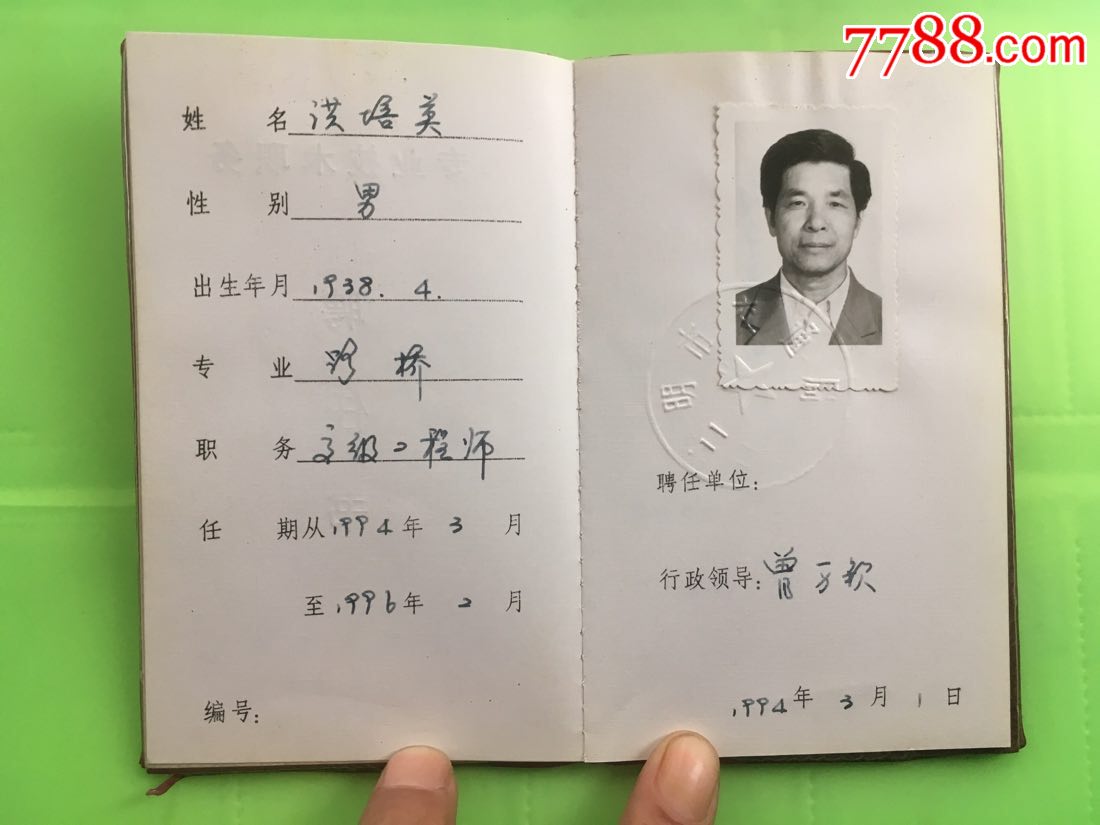 7788.com
姓 名 洪培英
性 别 男
出生年月 1938.4.
专 业 路桥
职 务 高级工程师
任 期从1994年3月
至1996年2月
编号：
聘任单位：
行政领导：曾万钦
1994年3月1日